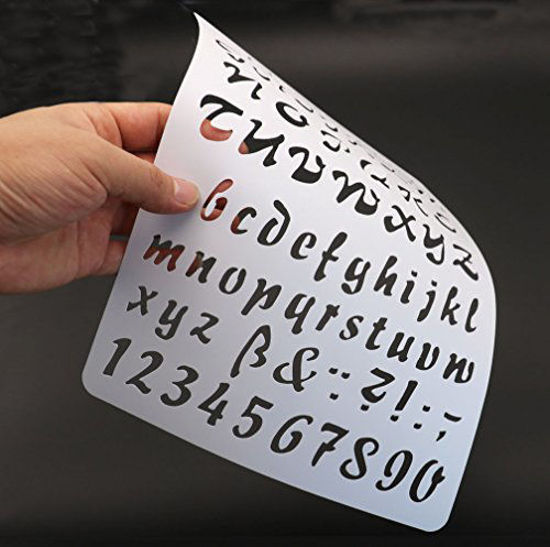 TUVWXYZ
bcdefghijkl
mnopqrstuvw
xyz ß&::?!:;-
1234567890